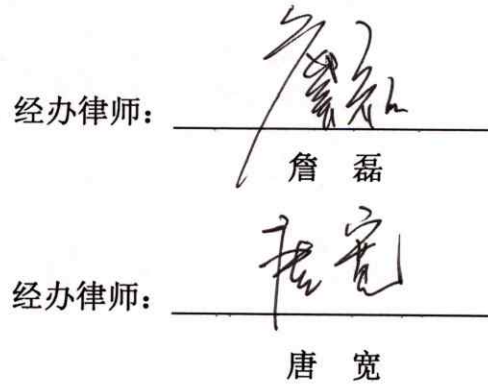 经办律师：
詹　磊
经办律师：
唐宽
唐　宽